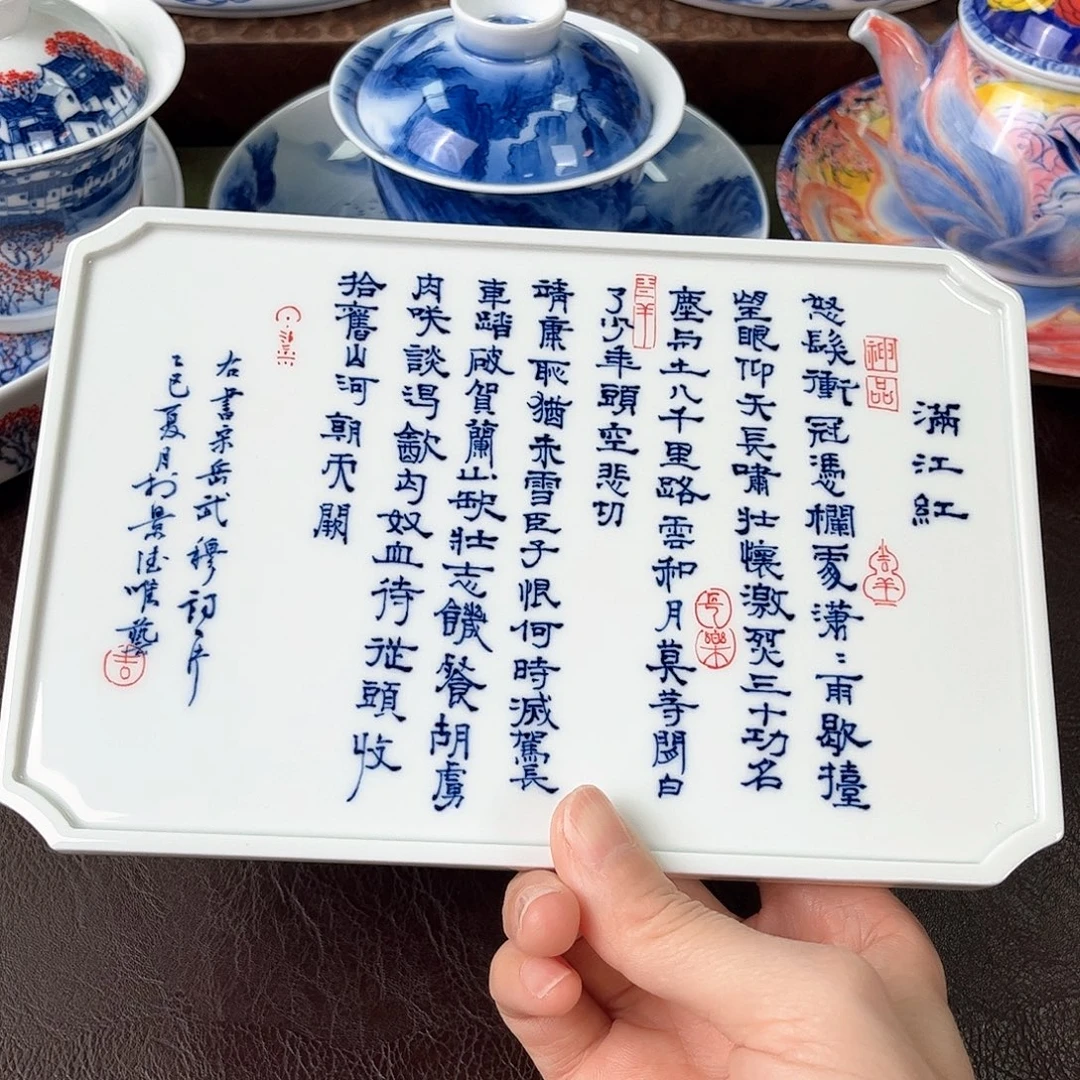 滿江紅
神品
吉羊
怒髮衝冠憑欄處瀟〻雨歇擡
望眼仰天長嘯壯懷激烈三十功名
長樂
塵与土八千里路雲和月莫等閑白
了少年頭空悲切
靖康恥猶未雪臣子恨何時滅駕長
車踏破賀蘭山缺壯志饑餐胡虜
肉咲談渴飲匈奴血待從頭收
拾舊山河朝天闕
右書宋岳武穆詞一片
乙巳夏月於景德唯藝
吉